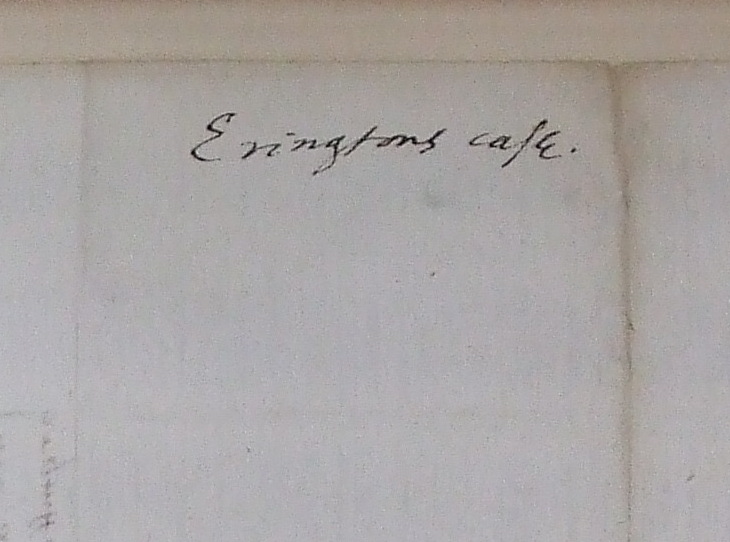 Eringtons case.